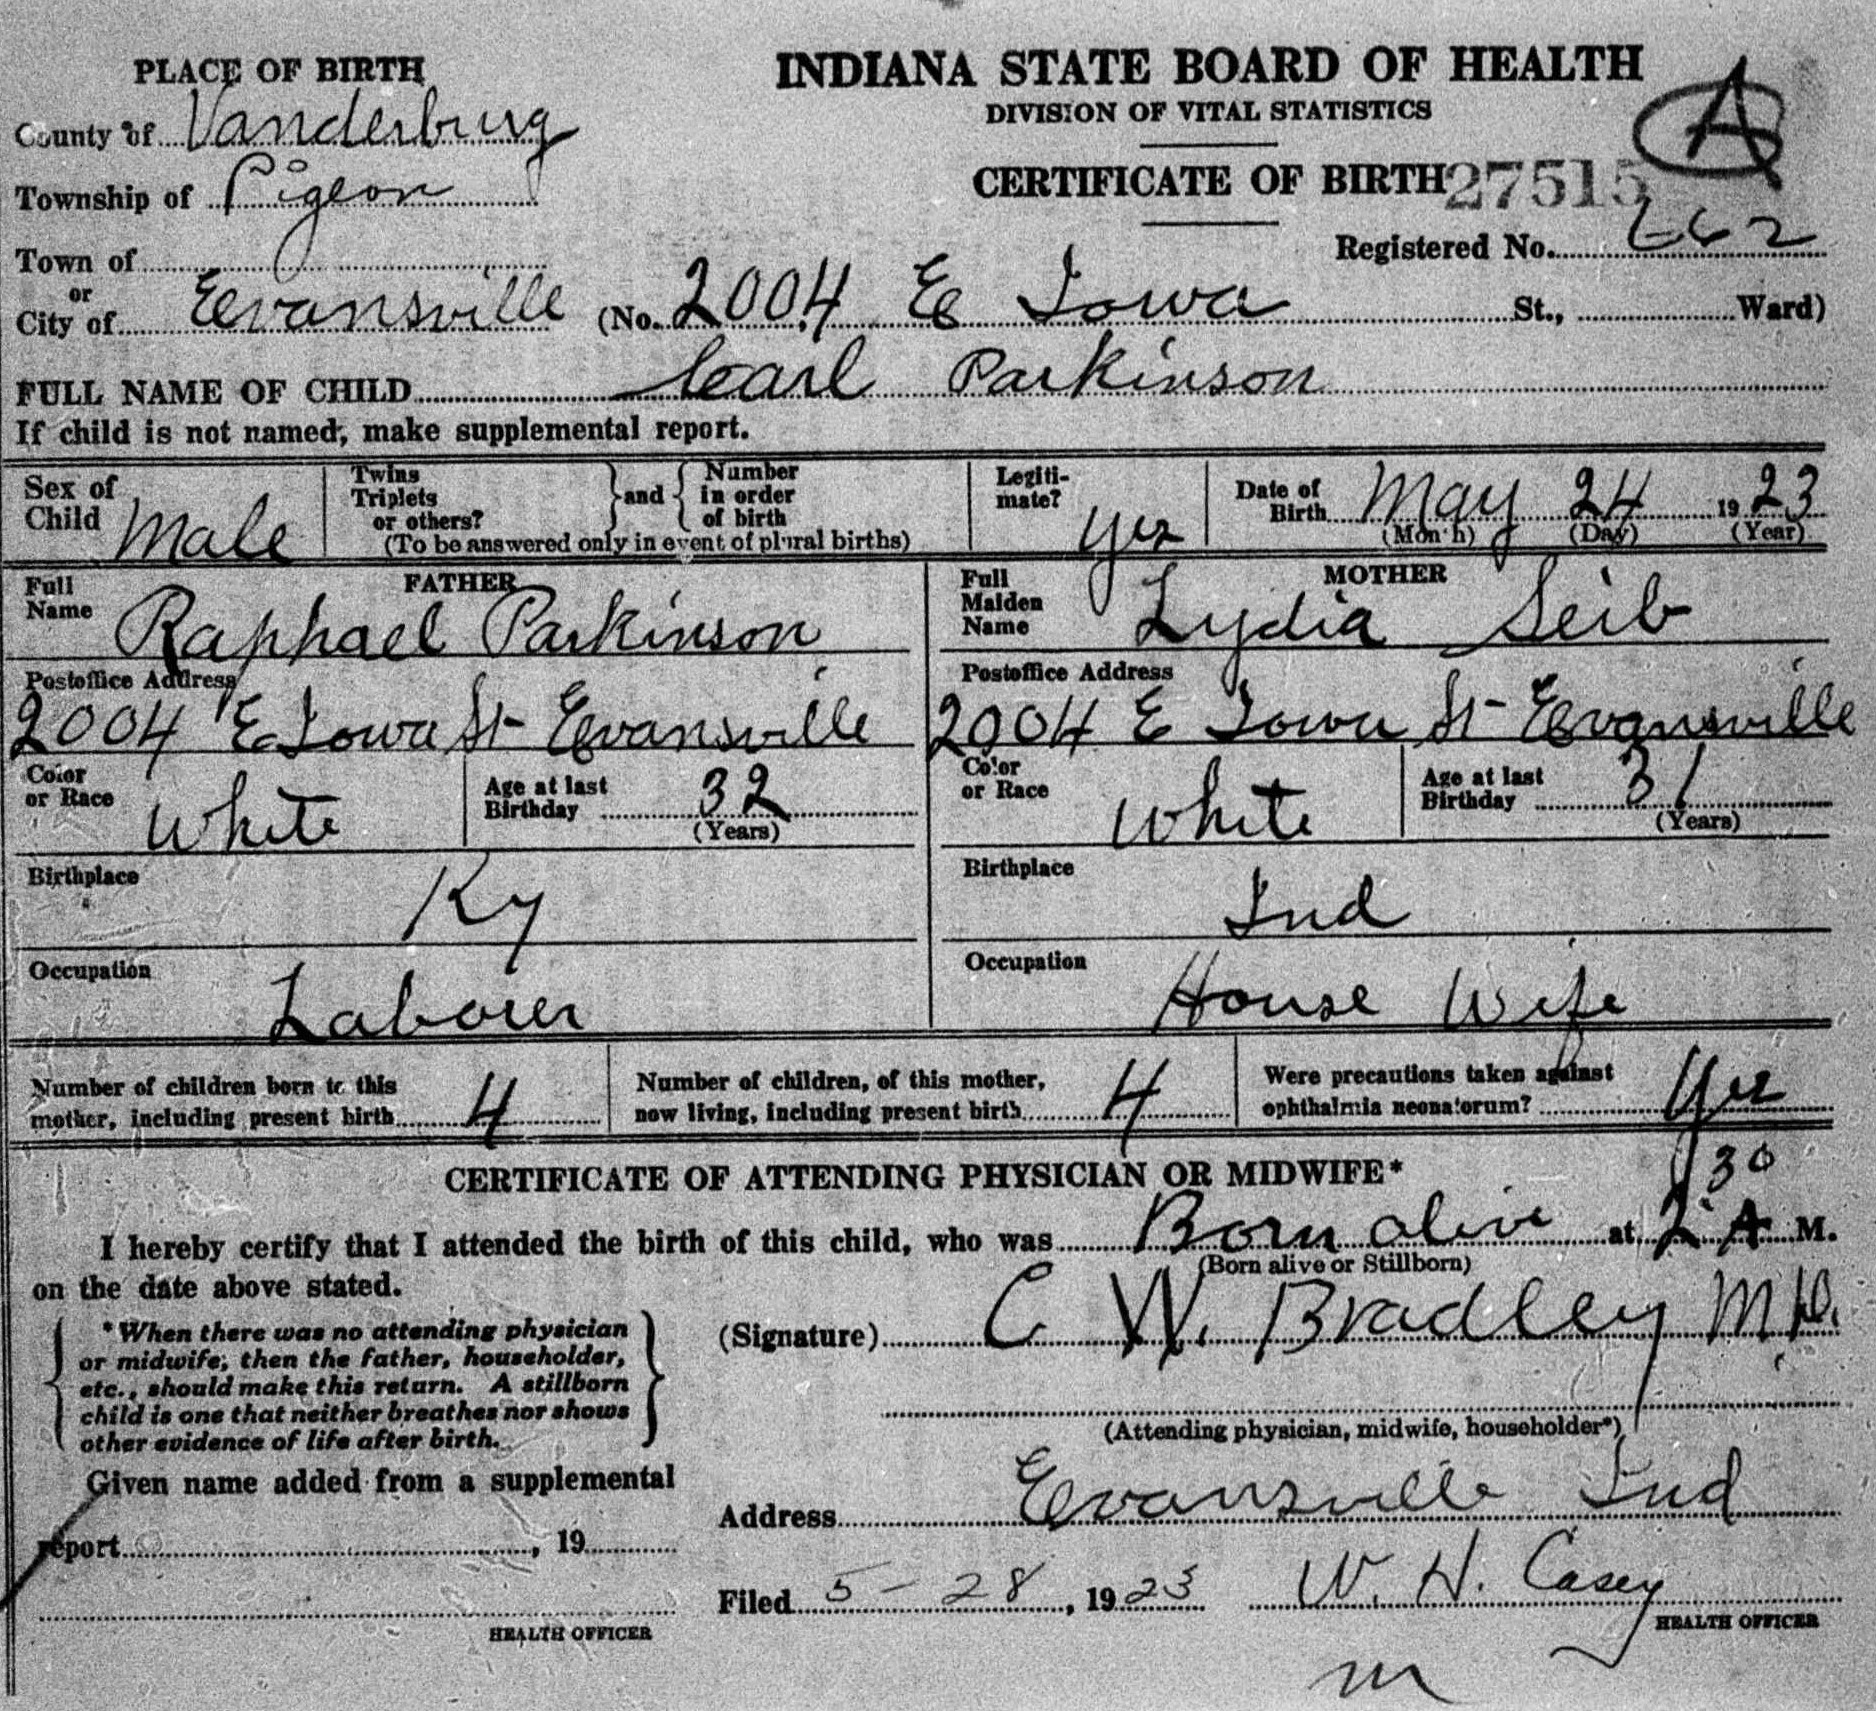 PLACE OF BIRTH
INDIANA STATE BOARD OF HEALTH
DIVISION OF VITAL STATISTICS
A
County of Vanderburg
CERTIFICATE OF BIRTH 27515
Township of Pigeon
Registered No. 662
Town of
or
City of Evansville (No. 2004 E Iowa St., Ward)
FULL NAME OF CHILD Carl Parkinson
If child is not named, make supplemental report.
Sex of Child Male
Twins Triplets or others? and Number in order of birth
(To be answered only in event of plural births)
Legitimate? yes
Date of Birth May 24 1923
(Month) (Day) (Year)
FATHER
Full Name Raphael Parkinson
MOTHER
Full Maiden Name Lydia Seib
Postoffice Address
2004 E Iowa St - Evansville
Postoffice Address
2004 E Iowa St - Evansville
Color or Race White
Age at last Birthday 32
(Years)
Color or Race White
Age at last Birthday 31
(Years)
Birthplace Ky
Birthplace Ind
Occupation Laborer
Occupation House Wife
Number of children born to this mother, including present birth 4
Number of children, of this mother, now living, including present birth 4
Were precautions taken against ophthalmia neonatorum? Yes
CERTIFICATE OF ATTENDING PHYSICIAN OR MIDWIFE*
I hereby certify that I attended the birth of this child, who was Born alive at 2 30 A M.
(Born alive or Stillborn)
on the date above stated.
*When there was no attending physician
or midwife, then the father, householder,
etc., should make this return. A stillborn
child is one that neither breathes nor shows
other evidence of life after birth.
(Signature) C W. Bradley M.D.
(Attending physician, midwife, householder*)
Given name added from a supplemental
report , 19
HEALTH OFFICER
Address Evansville Ind
Filed 5 - 28, 1923 W. H. Casey
HEALTH OFFICER
m